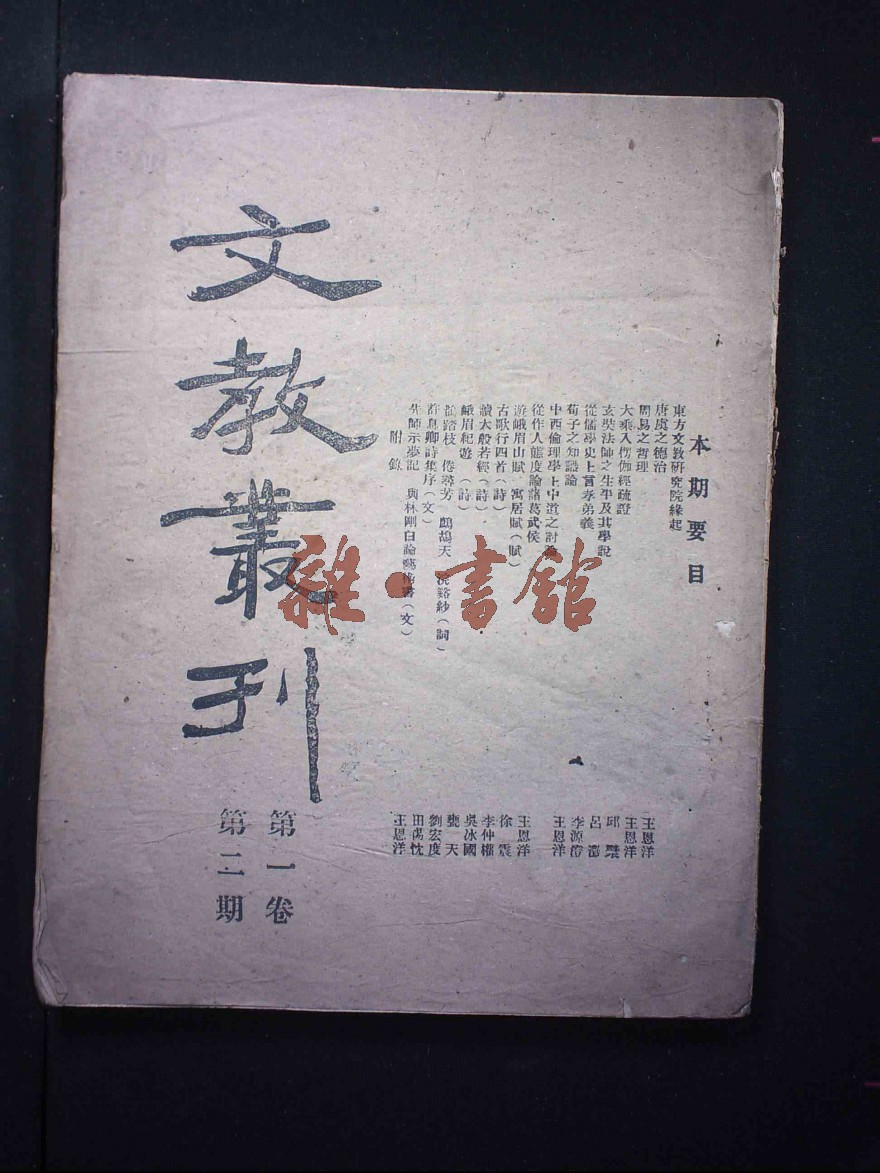 本期要目
東方文教研究院緣起
唐虞之德治
周易之哲理
大乘入楞伽經疏證
玄奘法師之生平及其學說
從儒學史上言孝弟義
荀子之知識論
中西倫理學上中道之討論
從作人態度論諸葛武侯
遊峨眉山賦 寓居賦(賦)
古歌行四首(詩)
讀大般若經(詩)
峨眉紀遊(詩)
踏枝 倦尋芳 鷓鴣天 浣谿紗(詞)
許息卿詩集序(文)
先師示夢記 與林剛白論藝術書(文)
附錄
王恩洋
王恩洋
邱檠
呂澂
李源澄
王恩洋
王恩洋
徐震
李仲權
吳冰國
甕天
劉宏度
田忱
王恩洋
文教叢刊
第一卷
第二期
雜·書館